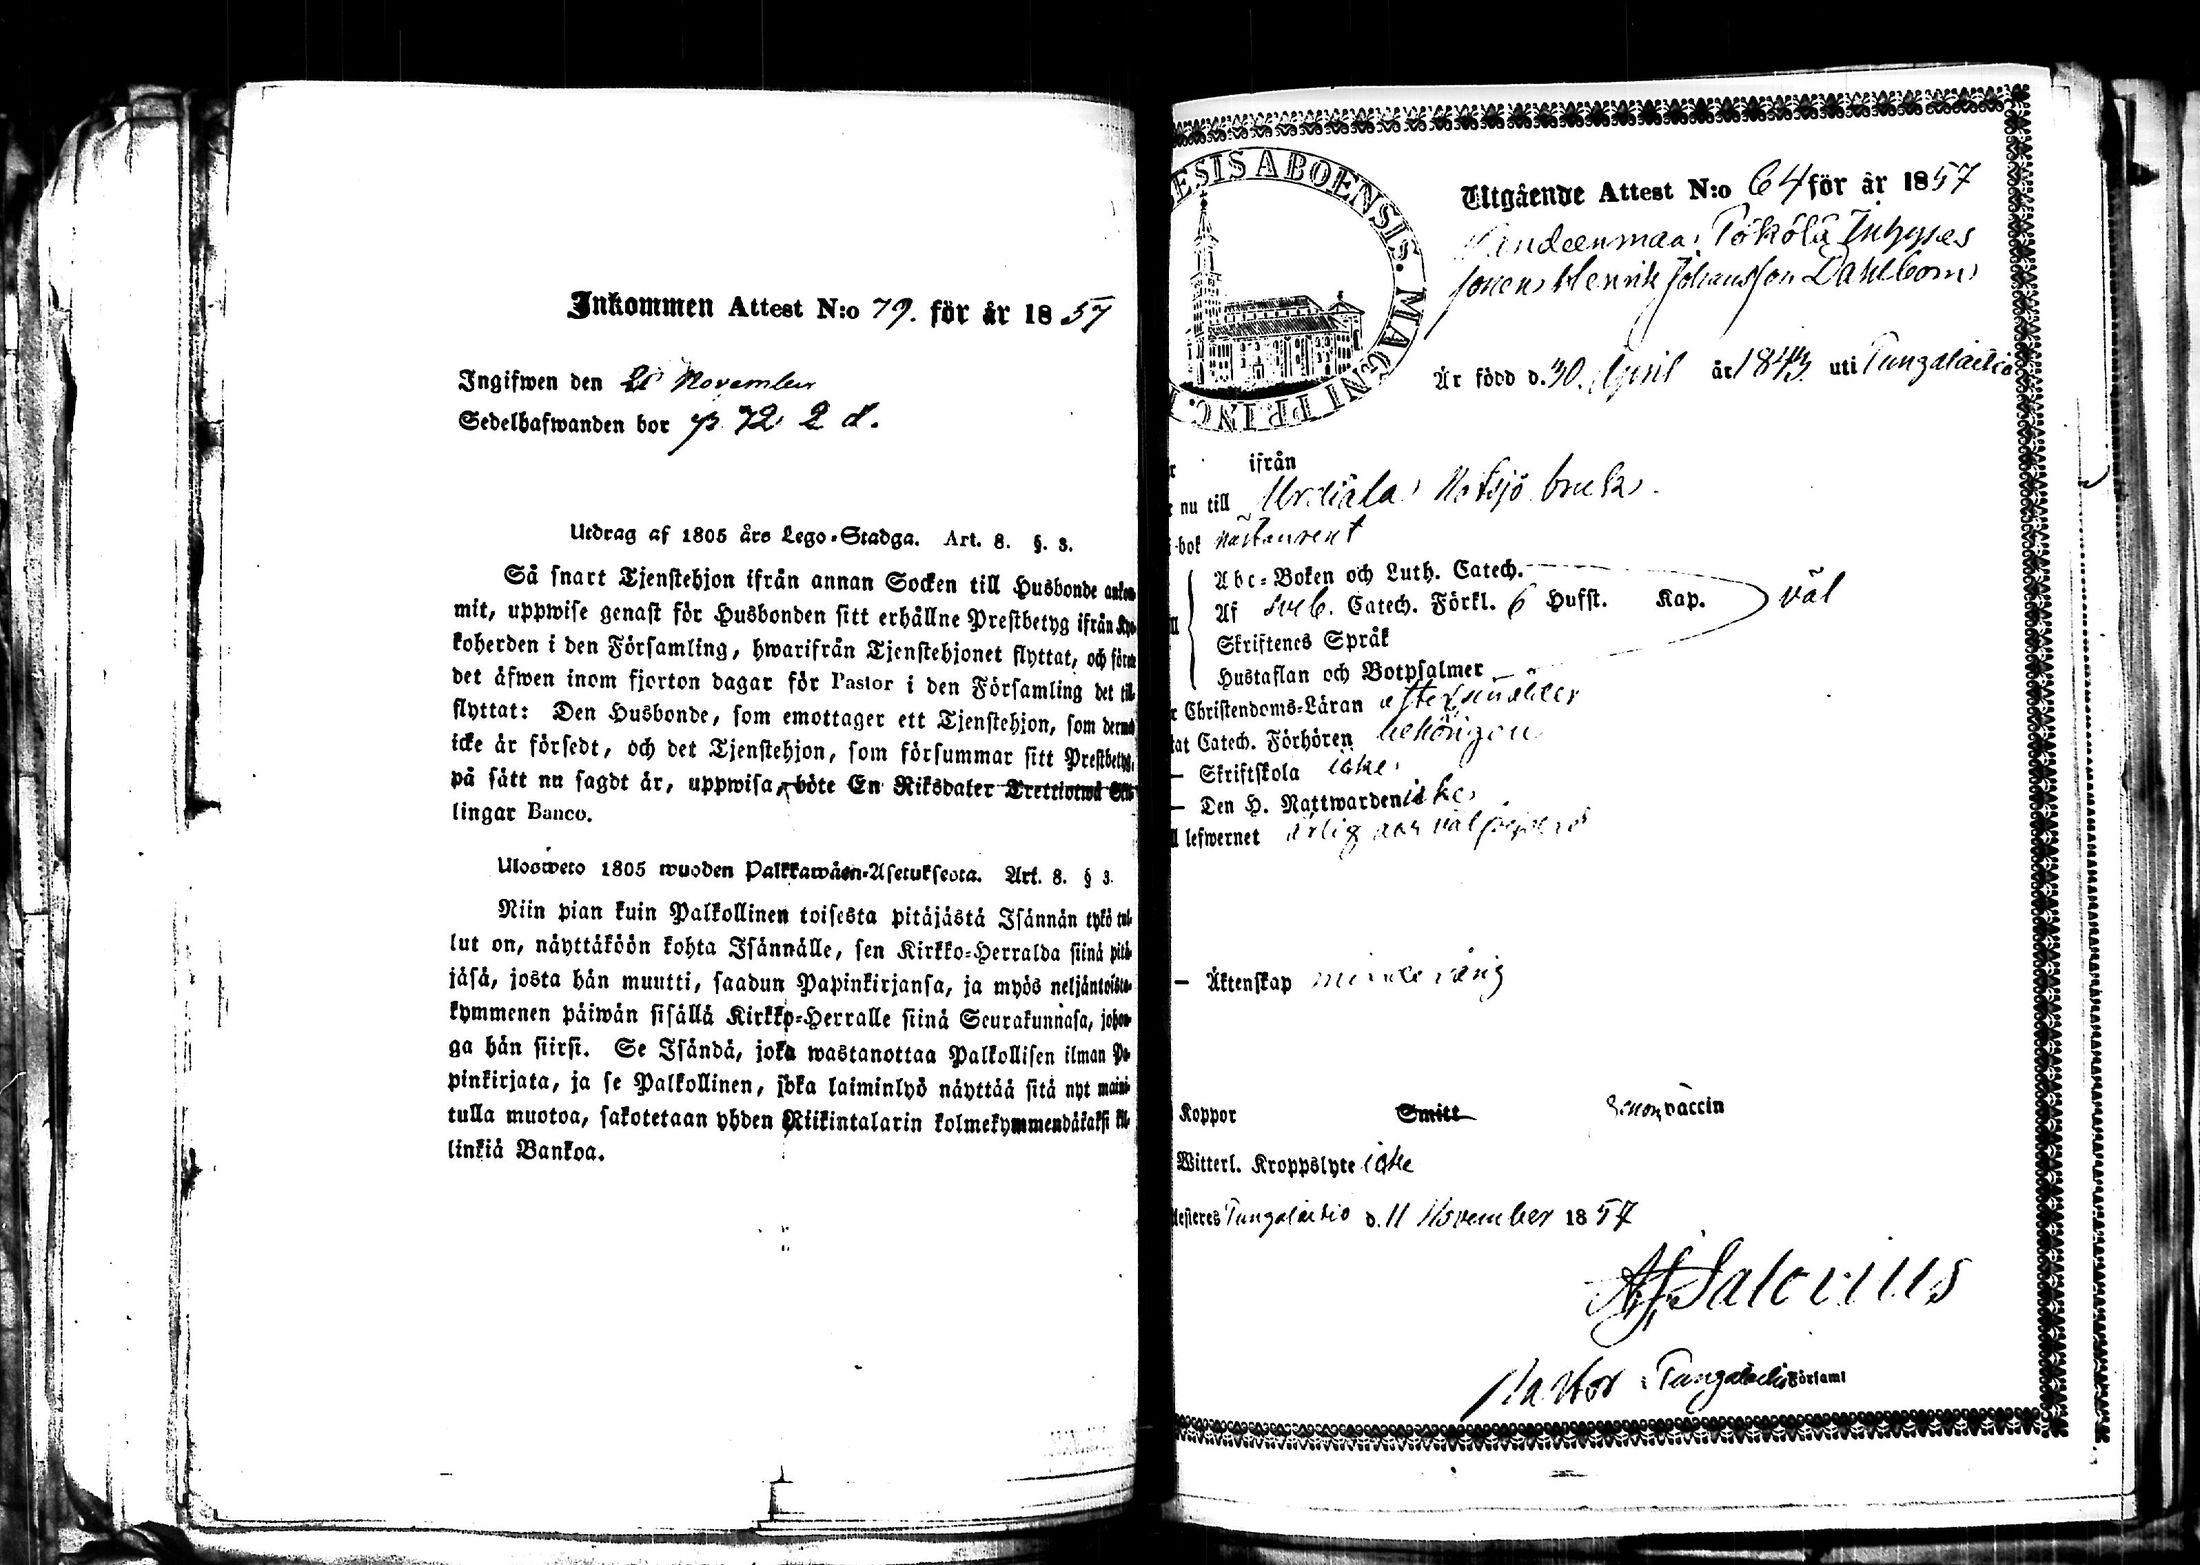 Inkommen Attest N:o 79. för år 1857
Ingifwen den November
Sedelhafwanden bor p 72 2 d.
Utdrag af 1805 års Lego-Stadga. Art. 8. §. 3.
Så snart Tjenstehjon ifrån annan Socken till Husbonde
mit, uppwise genast för Husbonden sitt erhållne Prestbetyg ifrån
koherden i den Församling, hwarifrån Tjenstehjonet flyttat, och
det äfwen inom fjorton dagar för Pastor i den Församling det
flyttat: Den Husbonde, som emottager ett Tjenstehjon, som
icke är försedt, och det Tjenstehjon, som försummar sitt Prestbetyg,
på sätt nu sagdt är, uppwisa, böte En Riksdaler Trettiotwå
lingar Banco.
Ulosweto 1805 wuoden Palkkawäen-Asetuksesta. Art. 8. § 3.
Niin pian kuin Palkollinen toisesta pitäjästä Isännän tykö tul-
lut on, näyttäköön kohta Isännälle, sen Kirkko-Herralda siinä pitä-
jäsä, josta hän muutti, saadun Papinkirjansa, ja myös neljäntoista-
kymmenen päiwän sisällä Kirkko-Herralle siinä Seurakunnasa, johon-
ga hän siirsi. Se Isändä, joka wastanottaa Palkollisen ilman Pa-
pinkirjata, ja se Palkollinen, joka laiminlyö näyttää sitä nyt maini-
tulla muotoa, sakotetaan yhden Riikintalarin kolmekymmendäkaksi kil-
linkiä Bankoa.
ESIS ABOENSIS. MAGNI PRINC.
Utgående Attest N:o 64 för år 1857
Henrik Johansson Dahlbom
Är född d. 30. April år 1843. uti Tungalaitio
ifrån
nu till Urdiala Notsjö bruk.
bok
Abc-Boken och Luth. Catech.
Af Sveb. Catech. Förkl. 6 Hufst. Kap. väl
Skriftenes Språk
Hustaflan och Botpsalmer
Christendoms-Läran
Catech. Förhören behörigen
— Skriftskola icke
— Den H. Nattwarden icke
lefwernet ärlig och
— Äktenskap minderårig
Koppor Smitt vaccin
Witterl. Kroppslyte icke
Tungalaitio d. 11 November 1857
Salovius
Pastor i Tungalaitio Församl